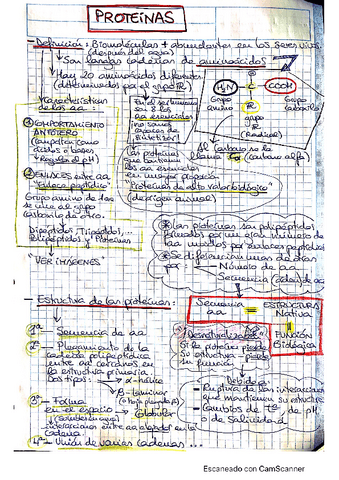 PROTEÍNAS
- Definición: Biomoléculas + abundantes en los seres vivos
(después del agua)
→ Son largas cadenas de aminoácidos
→ Hay 20 aminoácidos diferentes
(determinados por el grupo R)
H₂N - C - COOH
Grupo amino
R
grupo R
(Residual)
Grupo carboxilo
Características de los aa:
① COMPORTAMIENTO ANFÓTERO
(comportan como ácidos o bases)
→ Regular el pH)
② ENLACES entre aa
"Enlace peptídico"
Grupo amino de uno
se une al grupo
carboxilo de otro.
Dipéptidos, Tripéptidos,...
Polipéptidos y Proteínas
VER IMÁGENES
En el ser humano
los aa esenciales
no somos
capaces de
sintetizar
Las proteínas
que contienen
los aa esenciales
en mayor proporción
"Proteínas de alto valor biológico"
(de origen animal)
Al carbono se le
llama Cα (carbono alfa)
Las proteínas son polipéptidos
formados por un nº
aa unidos por enlaces peptídicos
Se diferencian unas de otras
por: → Número de aa
Secuencia (orden de aa)
- Estructura de las proteínas:
Secuencia aa = ESTRUCTURA Nativa
=
FUNCIÓN Biológica
1ª → Secuencia de aa
2ª → Plegamiento de la
cadena polipeptídica
entre aa cercanos en
la estructura primaria.
Dos tipos: → α-hélice
β-laminar
(o hoja plegada β)
3ª → Forma
en el espacio → Globular
interacciones entre aa
cadena
4ª → Unión de varias cadenas ...
"Desnaturalización"
Si la proteína pierde
su estructura → pierde
su función.
Debido a
- Ruptura de las interacciones
que mantienen su estructura
- Cambios de Tª, de pH,
o de salinidad
Escaneado con CamScanner